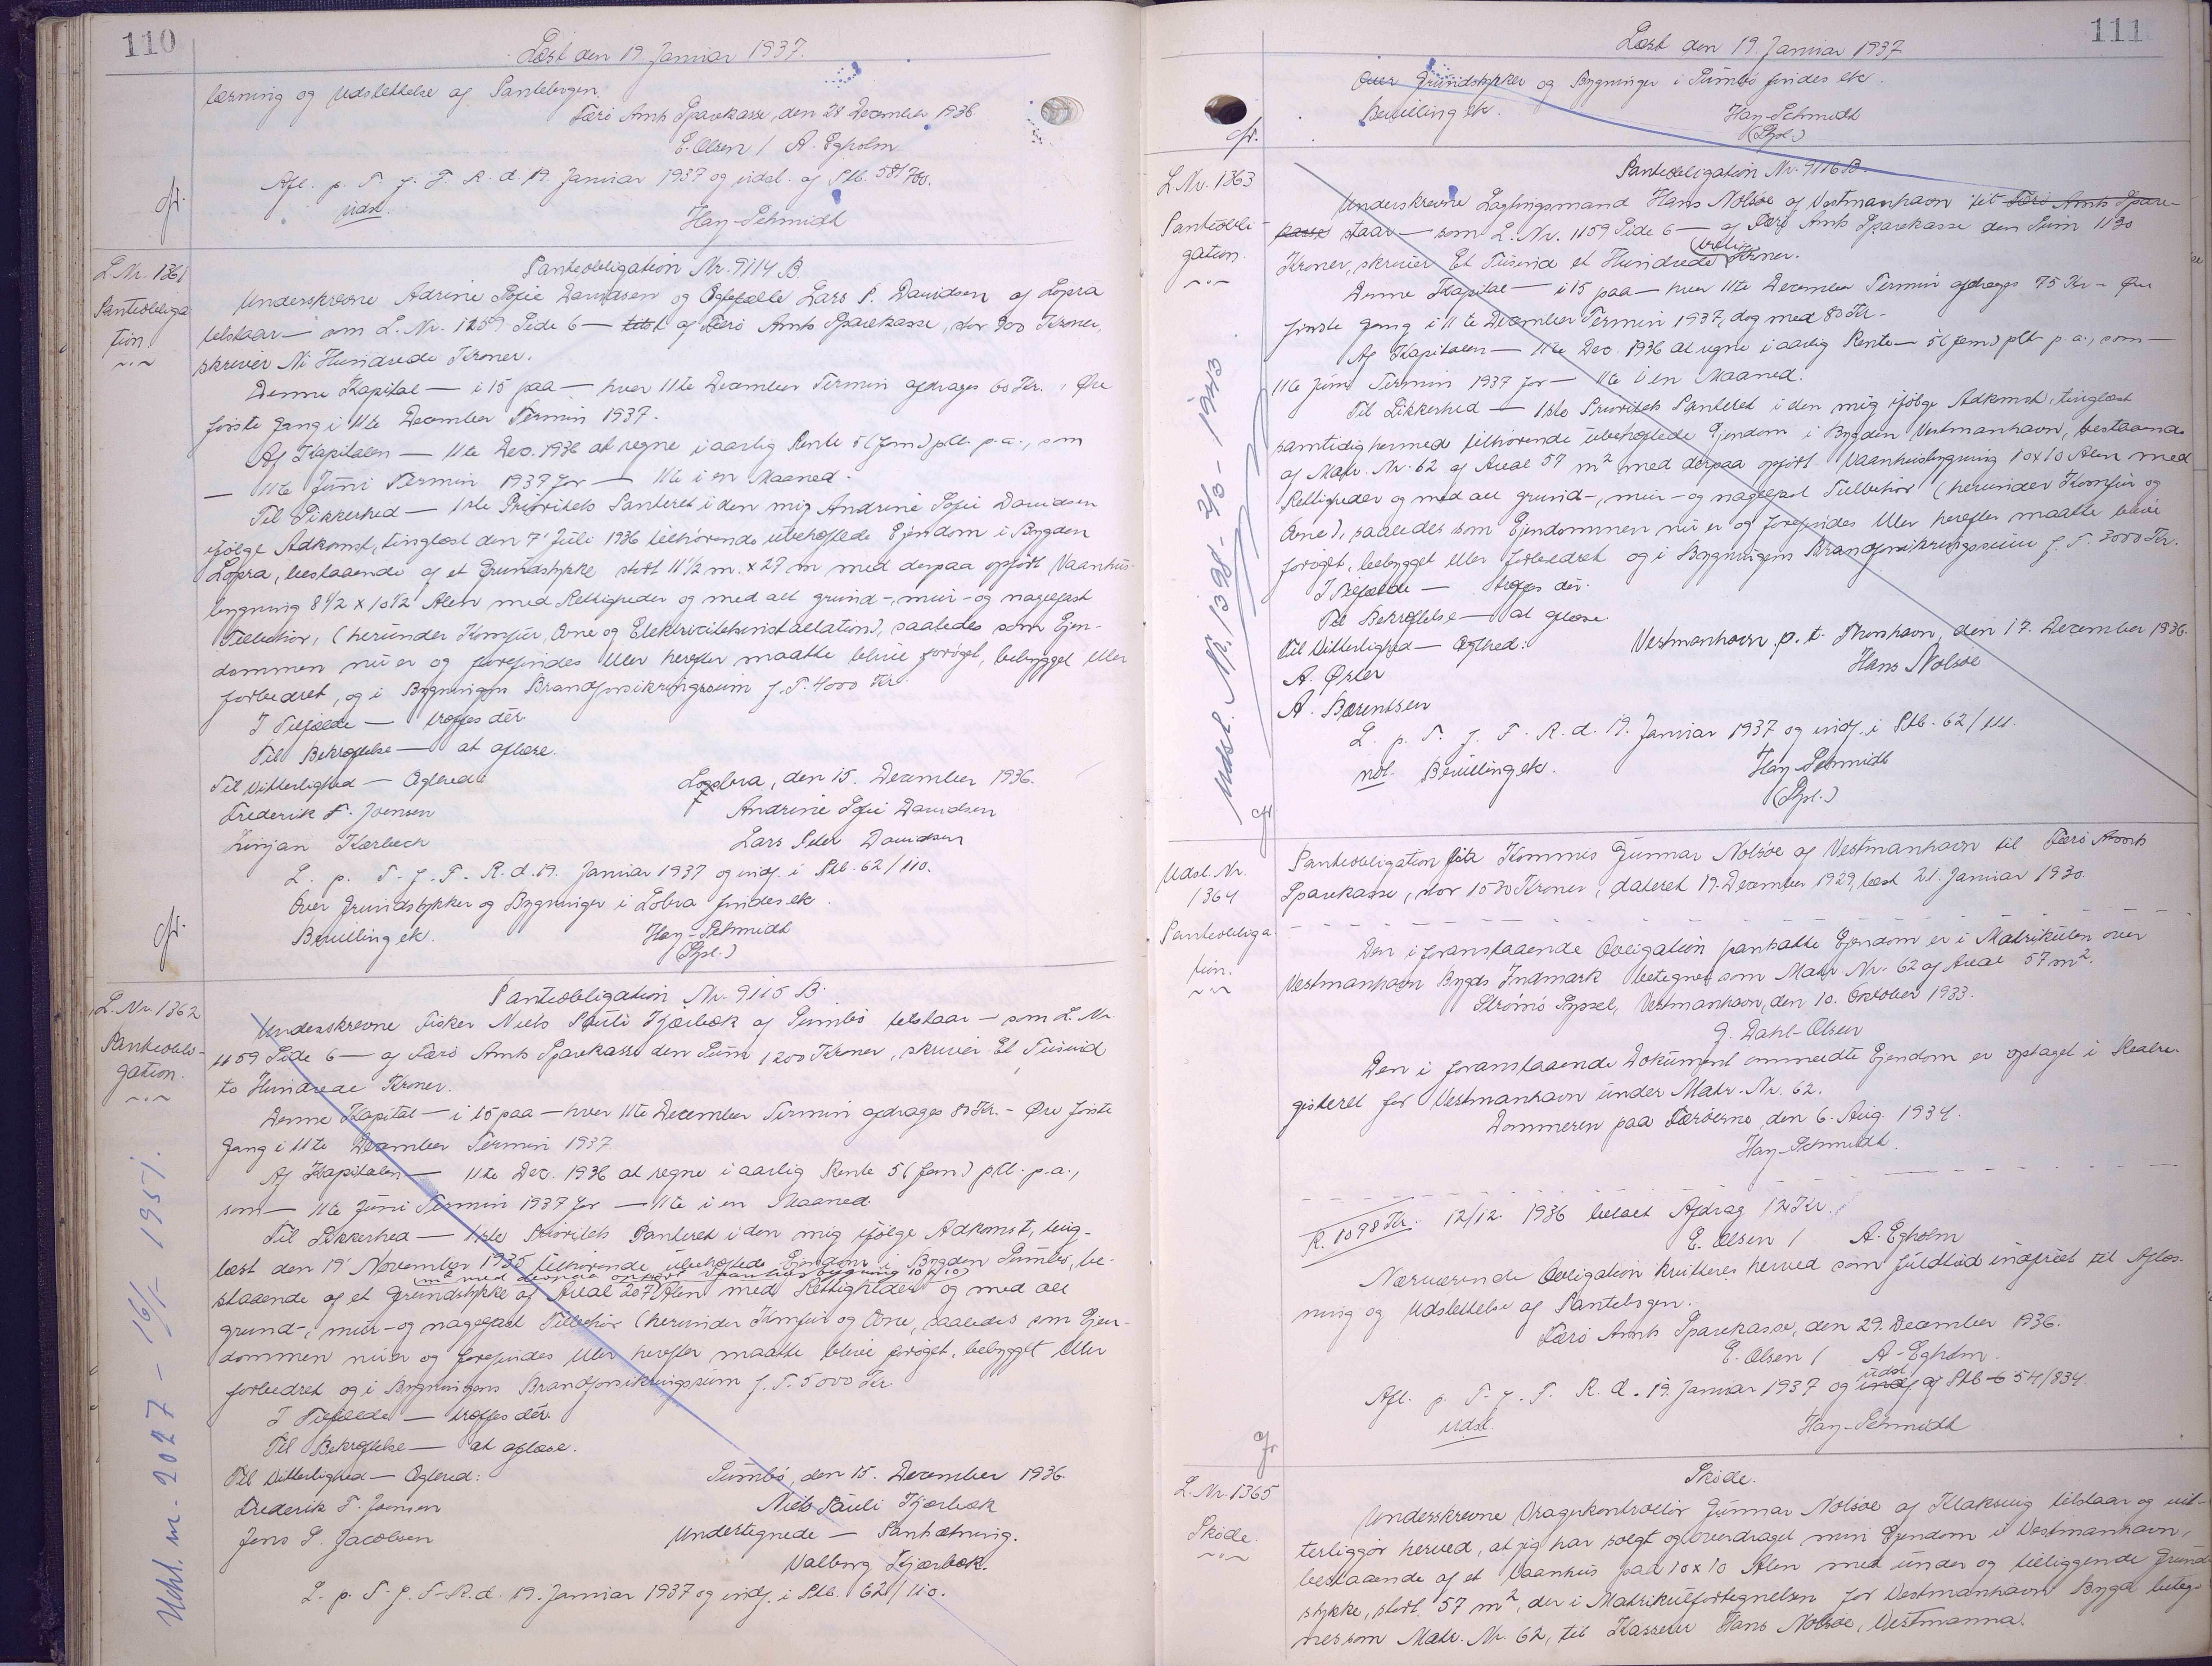 110
Læst den 19 Januar 1937.
læsning og Udslettelse af Pantebogen.
Færø Amts Sparekasse, den 28 December 1936.
E. Olsen / A. Egholm
Afl. p. T. f. F. R. d. 19 Januar 1937 og udsl. af Ptb. 58/760.
udsl.
Hay-Schmidt
L. Nr. 1361
Panteobliga
tion
Panteobligation Nr. 9114 B
Underskrevne Adrine Sofie Davidsen og Ægtefælle Lars P. Davidsen af Lopra
tilstaar — som L. Nr. 1159 Side 6 — af Færø Amts Sparekasse, stor 900 Kroner,
skriver Ni Hundrede Kroner.
Denne Kapital — i 15 paa — hver 11te December Termin afdrages 60 Kr. , Øre
første Gang i 11te December Termin 1937.
Af Kapitalen — 11te Dec. 1936 at regne i aarlig Rente 5 (fem) pCt. p.a., som
— 11te Juni Termin 1937 for — 11te i en Maaned.
Til Sikkerhed — 1ste Prioritets Panteret i den mig Andrine Sofie Davidsen
ifølge Adkomst, tinglæst den 7' Juli 1936 tilhørende ubehæftede Ejendom i Bygden
Lopra, bestaaende af et Grundstykke stort 11 1/2 m. x 27 m med derpaa opført Vaanhus-
bygning 8 1/2 x 10 1/2 Alen med Rettigheder og med alt grund-, mur- og nagelfast
Tilbehør, (herunder Komfur, Ovne og Elektricitetsinstallation), saaledes som Ejen-
dommen nu er og forefindes eller herefter maatte blive forøget, bebygget eller
forbedret, og i Bygningens Brandforsikringssum f. T. 4000 Kr.
I Tilfælde — træffes dér.
Til Bekræftelse — at aflæse.
Til Vitterlighed — Ægtrede
Lopra, den 15. December 1936.
Frederik F. Joensen
Andrine Sofie Davidsen
Linjan Kærbech
Lars Peter Davidsen
L. p. T. f. F. R. d. 19. Januar 1937 og indf. i Ptb. 62/110.
Over Grundstykker og Bygninger i Lobra findes ek.
Bevilling ek.
Hay-Schmidt
(Gpl.)
L. Nr. 1362
Panteobli-
gation.
Panteobligation Nr. 9115 B.
Underskrevne Fisker Niels Pauli Kjærbæk af Sumbø tilstaar — som L. Nr.
1159 Side 6 — af Færø Amts Sparekasse den Sum 1200 Kroner, skriver Et Tusind
to Hundrede Kroner.
Denne Kapital — i 15 paa — hver 11te December Termin afdrages 80 Kr. - Øre første
Gang i 11te December Termin 1937.
Af Kapitalen — 11te Dec. 1936 at regne i aarlig Rente 5 (fem) pCt. p.a.,
som — 11te Juni Termin 1937 for — 11te i en Maaned.
Til Sikkerhed — 1ste Prioritets Panteret i den mig ifølge Adkomst, ting-
læst den 19' November 1935 tilhørende ubehæftede Ejendom i Bygden Sumbø, be-
(m² med derpaa opført Vaanhusbygning 10 x 10)
staaende af et Grundstykke af Areal 207 Alen med Rettigheder og med alt
grund-, mur- og nagelfast Tilbehør (herunder Komfur og Ovne, saaledes som Ejen-
dommen nu er og forefindes eller herefter maatte blive forøget, bebygget eller
forbedret og i Bygningens Brandforsikringssum f. T. 5000 Kr.
I Tilfælde — træffes dér.
Til Bekræftelse — at aflæse.
Til Vitterlighed — Ægtred:
Sumbø, den 15. December 1936.
Frederik F. Joensen
Niels Pauli Kjærbæk
Jens P. Jacobsen
Undertegnede — Panthætning.
Valborg Kjærbæk.
L. p. T. f. F. R. d. 19. Januar 1937 og indf. i Ptb. 62/110.
Udsl. nr. 2027 - 16/- 1951.
111
Læst den 19. Januar 1937
Over Grundstykker og Bygninger i Sumbø findes ek.
Bevilling ek.
Hay-Schmidt
(Gpl.)
L. Nr. 1363
Panteobli-
gation.
Panteobligation Nr. 9116 B.
Underskrevne Lagtingsmand Hans Nolsøe af Vestmanhavn til Færø Amts Spare-
kasse staar — som L. Nr. 1159 Side 6 — af Færø Amts Sparekasse den Sum 1130
Kroner, skriver Et Tusind et Hundrede (tredive) Kroner.
Denne Kapital — i 15 paa — hver 11te December Termin afdrages 75 Kr - Øre
første Gang i 11te December Termin 1937, dog med 80 Kr.-
Af Kapitalen — 11te Dec. 1936 at regne i aarlig Rente — 5 (fem) pCt p.a., som —
11te Juni Termin 1937 for — 11te i en Maaned.
Til Sikkerhed — 1ste Prioritets Panteret i den mig ifølge Adkomst, tinglæst
samtidig hermed tilhørende ubehæftede Ejendom i Bygden Vestmanhavn, bestaaende
af Matr. Nr. 62 af Areal 57 m² med derpaa opført Vaanhusbygning 10x10 Alen med
Rettigheder og med alt grund-, mur- og nagelfast Tilbehør (herunder Komfur og
Ovne), saaledes som Ejendommen nu er og forefindes eller herefter maatte blive
forøget, bebygget eller forbedret og i Bygningens Brandforsikringssum f. T. 3000 Kr.
I Tilfælde — træffes dér.
Til Bekræftelse — at aflæse
Til Vitterlighed — Ægtred:
Vestmanhavn p. t. Thorshavn, den 17. December 1936.
A. Ørter
Hans Nolsøe
A. Bærentsen
L. p. T. f. F. R. d. 19. Januar 1937 og indf. i Ptb. 62/111.
not. Bevilling ek.
Hay-Schmidt
(Gpl.)
Udsl. Nr. 1398 - 2/3 - 1943
Udsl. Nr.
1364
Panteobliga
tion.
Panteobligation fra Kommis Gunnar Nolsøe af Vestmanhavn til Færø Amts
Sparekasse, stor 1530 Kroner, dateret 19. December 1929, læst 21. Januar 1930.
Den i foranstaaende Obligation panhatte Ejendom er i Matrikulen over
Vestmanhavn Bygds Indmark betegnet som Matr. Nr. 62 af Areal 57 m².
Strømø Syssel, Vestmanhavn, den 10. October 1933.
J. Dahl-Olsen
Den i foranstaaende Dokument ommeldte Ejendom er optaget i Realre-
gisteret for Vestmanhavn under Matr. Nr. 62.
Dommeren paa Færøerne, den 6. Aug. 1934.
Hay-Schmidt.
R. 1098 Kr. 12/12. 1936 betalt Afdrag 12 Kr.
E. Olsen / A. Egholm
Nærværende Obligation kvitteres herved som fuldtud indfriet til Aflæs-
ning og Udslettelse af Pantebogen.
Færø Amts Sparekasse, den 29. December 1936.
E. Olsen / A. Egholm.
Afl. p. T. f. F. R. d. 19. Januar 1937 og indf udsl. af Ptb 54/834.
udsl.
Hay-Schmidt
L. Nr. 1365
Skøde.
Skøde.
Underskrevne Vragerkontrollør Gunnar Nolsøe af Klaksvig tilstaar og vit-
terliggør herved, at jeg har solgt og overdraget min Ejendom i Vestmanhavn,
bestaaende af et Vaanhus paa 10x10 Alen med under og tilliggende Grund-
stykke, stort 57 m², der i Matrikulfortegnelsen for Vestmanhavn Bygd beteg-
nes som Matr. Nr. 62, til Kasserer Hans Nolsøe, Vestmanna.